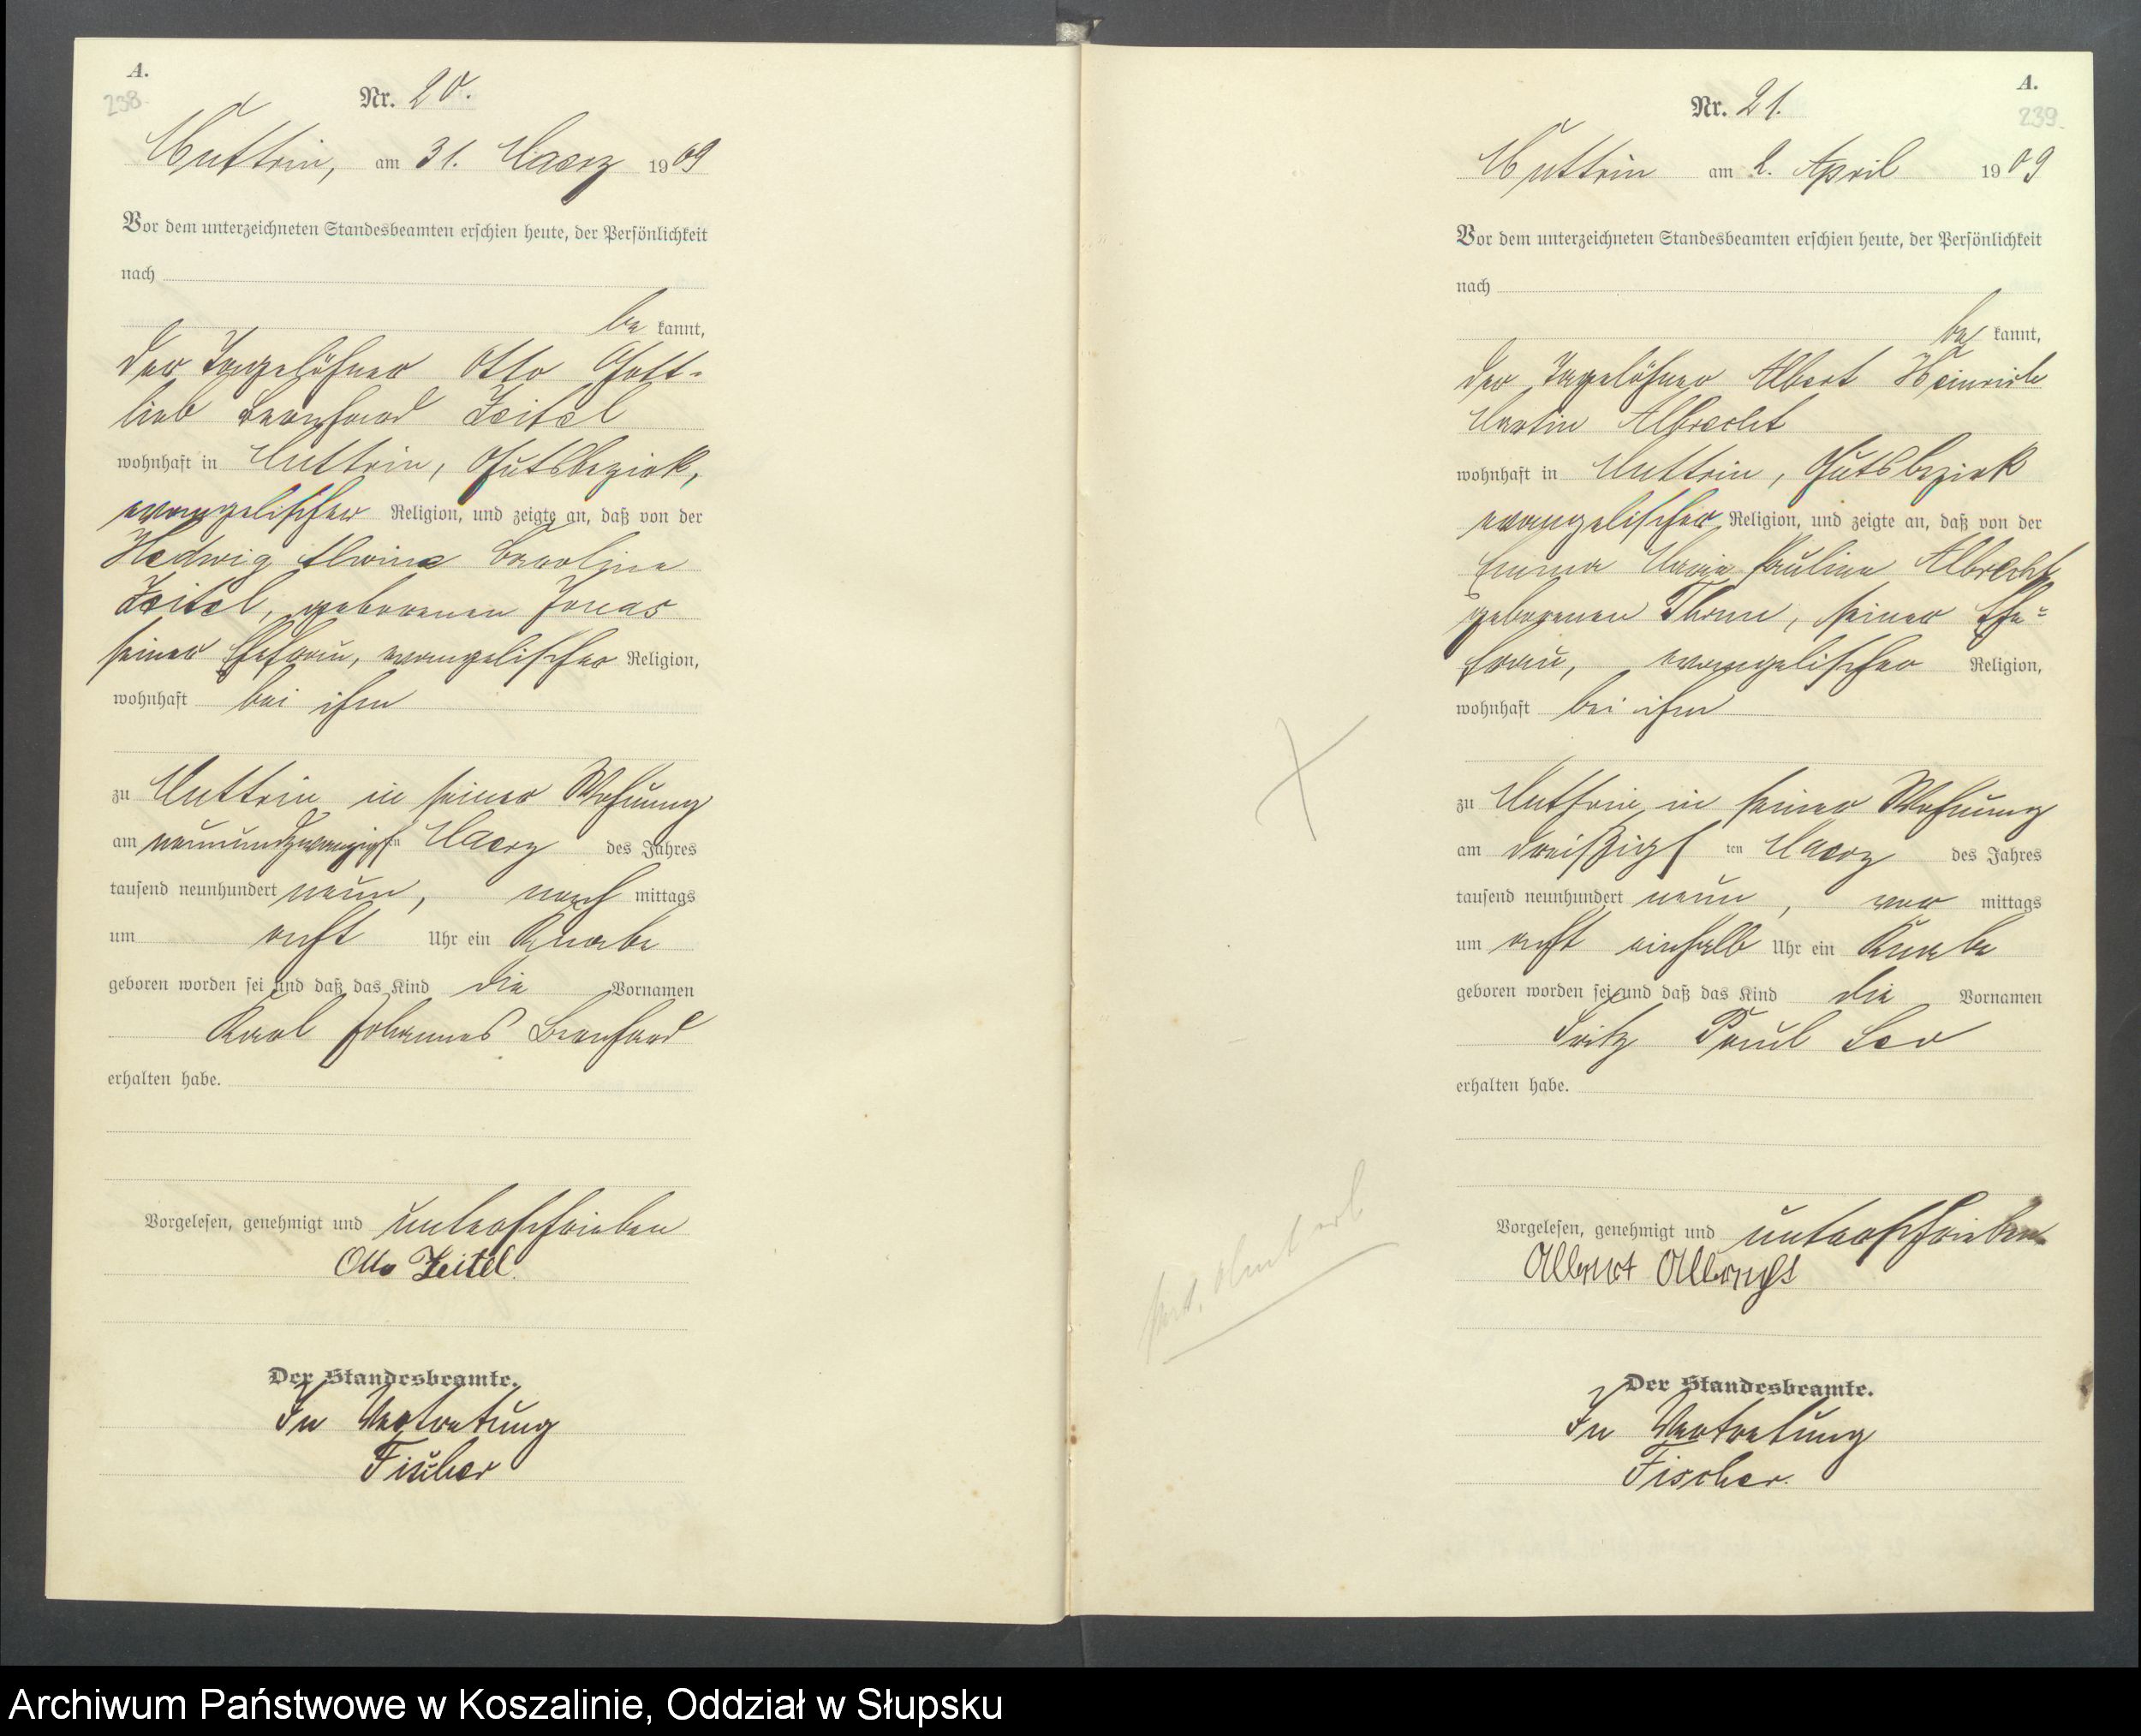 A.
238.
Nr. 20.
Muttrin, am 31. Maerz 1909
Vor dem unterzeichneten Standesbeamten erschien heute, der Persönlichkeit
nach
be kannt,
der Tagelöhner Otto Gott-
lieb Bernhard Zeitel
wohnhaft in Muttrin, Gutsbezirk,
evangelischer Religion, und zeigte an, daß von der
Hedwig Alwine Caroline
Zeitel, geborenen Jonas
seiner Ehefrau, evangelischer Religion,
wohnhaft bei ihm
zu Muttrin in seiner Wohnung
am neunundzwanzigsten Maerz des Jahres
tausend neunhundert neun, nach mittags
um acht Uhr ein Knabe
geboren worden sei und daß das Kind die Vornamen
Karl Johannes Bernhard
erhalten habe.
Vorgelesen, genehmigt und unterschrieben
Otto Zeitel.
Der Standesbeamte.
In Vertretung
Fischer
A.
239.
Nr. 21.
Muttrin am 2. April 1909
Vor dem unterzeichneten Standesbeamten erschien heute, der Persönlichkeit
nach
be kannt,
der Tagelöhner Albert Heinrich
Martin Albrecht
wohnhaft in Muttrin, Gutsbezirk
evangelischer Religion, und zeigte an, daß von der
Emma Marie Pauline Albrecht
geborenen Thrun, seiner Ehe-
frau, evangelischer Religion,
wohnhaft bei ihm
zu Muttrin in seiner Wohnung
am dreißigsten Maerz des Jahres
tausend neunhundert neun, vor mittags
um acht einhalb Uhr ein Knabe
geboren worden sei und daß das Kind die Vornamen
Fritz Paul Leo
erhalten habe.
Vorgelesen, genehmigt und unterschrieben
Albert Albrecht
Der Standesbeamte.
In Vertretung
Fischer.
Archiwum Państwowe w Koszalinie, Oddział w Słupsku